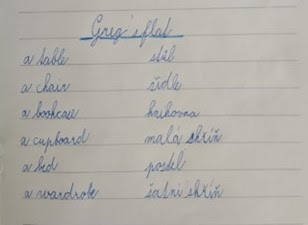 Greg's flat
a table stůl
a chair židle
a bookcase knihovna
a cupboard malá skříň
a bed postel
a wardrobe šatní skříň